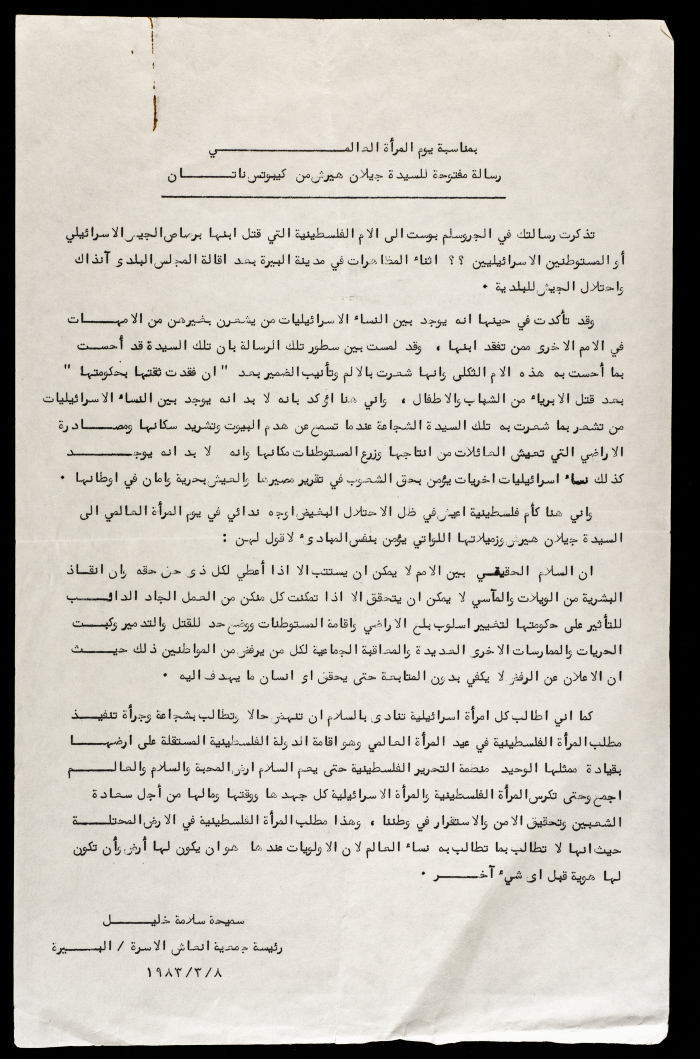 بمناسبة يوم المرأة العالمـــــــــــــــــي
رسالة مفتوحة للسيدة جيلان هيرش من كيبوتس ناتـــــــان
تذكرت رسالتك في الجروسلم بوست الى الام الفلسطينية التي قتل ابنها برصاص الجيش الاسرائيلي
أو المستوطنين الاسرائيليين ؟؟ اثناء المظاهرات في مدينة البيرة بعد اقالة المجلس البلدى آنذاك
واحتلال الجيش للبلدية .
وقد تأكدت في حينها انه يوجد بين النساء الاسرائيليات من يشعرن بغيرهن من الامهـــات
في الامم الاخرى ممن تفقد ابنها ، وقد لمست بين سطور تلك الرسالة بان تلك السيدة قد أحست
بما أحست به هذه الام الثكلى وانها شعرت بالالم وتأنيب الضمير بعد " ان فقدت ثقتها بحكومتها "
بعد قتل الابرياء من الشباب والاطفال ، واني هنا اؤكد بانه لا بد انه يوجد بين النساء الاسرائيليات
من تشعر بما شعرت به تلك السيدة الشجاعة عندما تسمع عن هدم البيوت وتشريد سكانها ومصــادرة
الاراضي التي تعيش العائلات من انتاجها وزرع المستوطنات مكانها وانه لا بد انه يوجـــــد
كذلك نساء اسرائيليات اخريات يؤمن بحق الشعوب في تقرير مصيرها والعيش بحرية وامان في اوطانها .
واني هنا كأم فلسطينية اعيش في ظل الاحتلال البغيض اوجه ندائي في يوم المرأة العالمي الى
السيدة جيلان هيرش وزميلاتها اللواتي يؤمن بنفس المبادئ لاقول لهن :
ان السلام الحقيقي بين الامم لا يمكن ان يستتب الا اذا أعطي لكل ذى حق حقه وان انقاذ
البشرية من الويلات والمآسي لا يمكن ان يتحقق الا اذا تمكنت كل منكن من العمل الجاد الدائــب
للتأثير على حكومتها لتغيير اسلوب بلع الاراضي واقامة المستوطنات ووضع حد للقتل والتدمير وكبــت
الحريات والممارسات الاخرى العديدة والمعاقبة الجماعية لكل من يرفض من المواطنين ذلك حيــث
ان الاعلان عن الرفض لا يكفي بدون المتابعة حتى يحقق اى انسان ما يهدف اليه .
كما اني اطالب كل امرأة اسرائيلية تنادى بالسلام ان تنهض حالا وتطالب بشجاعة وجرأة تنفيــذ
مطلب المرأة الفلسطينية في عيد المرأة العالمي وهو اقامة الدولة الفلسطينية المستقلة على ارضهــا
بقيادة ممثلها الوحيد منظمة التحرير الفلسطينية حتى يعم السلام ارض المحبة والسلام والعالـــم
اجمع وحتى تكرس المرأة الفلسطينية والمرأة الاسرائيلية كل جهدها ووقتها ومالها من أجل سعادة
الشعبين وتحقيق الامن والاستقرار في وطننا ، وهذا مطلب المرأة الفلسطينية في الارض المحتلــة
حيث انها لا تطالب بما تطالب به نساء العالم لان الاولويات عندها هو ان يكون لها أرض وأن تكون
لها هوية قبل اى شيء آخــــر .
سميحة سلامة خليـــــل
رئيسة جمعية انعاش الاسرة / البيـــــرة
١٩٨٣/٣/٨